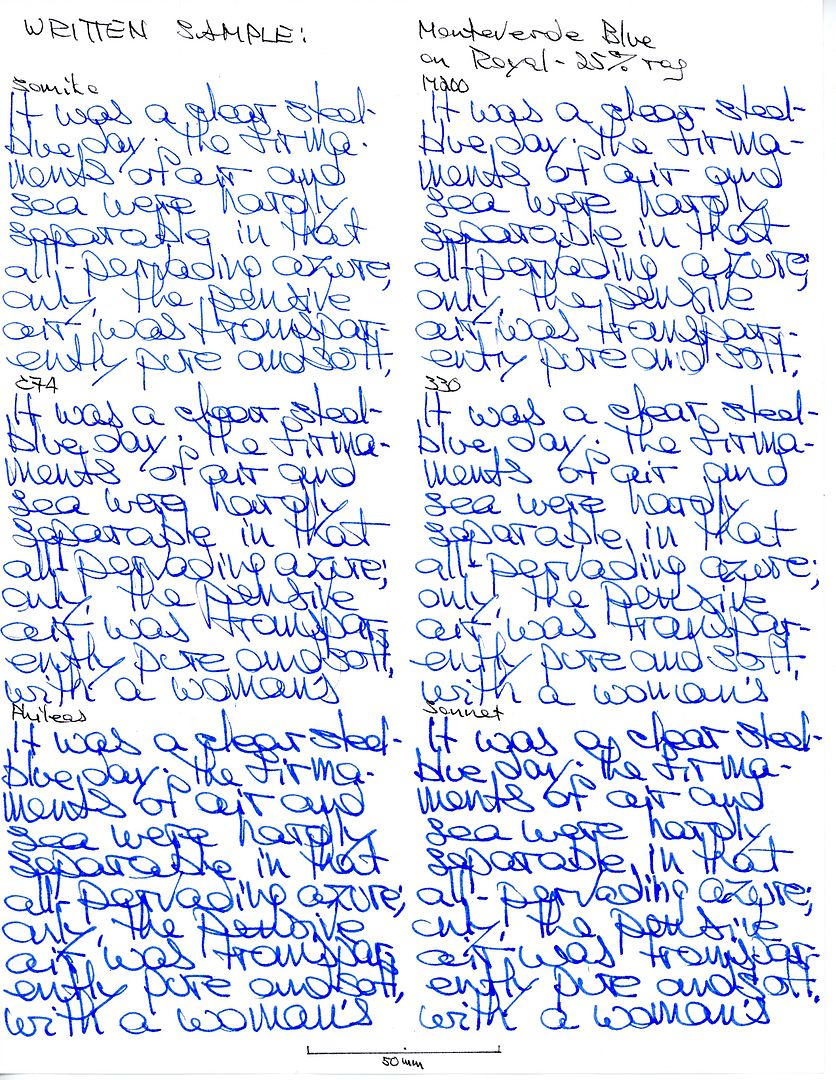 WRITTEN SAMPLE:
Monteverde Blue
on Royal - 25% rag
Somiko
It was a clear steel-
blue day. The firma-
ments of air and
sea were hardly
separable in that
all-pervading azure;
only, the pensive
air was transpar-
ently pure and soft,
M200
It was a clear steel-
blue day. The firma-
ments of air and
sea were hardly
separable in that
all-pervading azure;
only, the pensive
air was transpar-
ently pure and soft,
C74
It was a clear steel-
blue day. The firma-
ments of air and
sea were hardly
separable in that
all-pervading azure;
only, the pensive
air was transpar-
ently pure and soft,
with a woman's
330
It was a clear steel-
blue day. The firma-
ments of air and
sea were hardly
separable in that
all-pervading azure;
only, the pensive
air was transpar-
ently pure and soft,
with a woman's
Phileas
It was a clear steel-
blue day. The firma-
ments of air and
sea were hardly
separable in that
all-pervading azure;
only, the pensive
air was transpar-
ently pure and soft,
with a woman's
Sonnet
It was a clear steel-
blue day. The firma-
ments of air and
sea were hardly
separable in that
all-pervading azure;
only, the pensive
air was transpar-
ently pure and soft,
with a woman's
50 mm